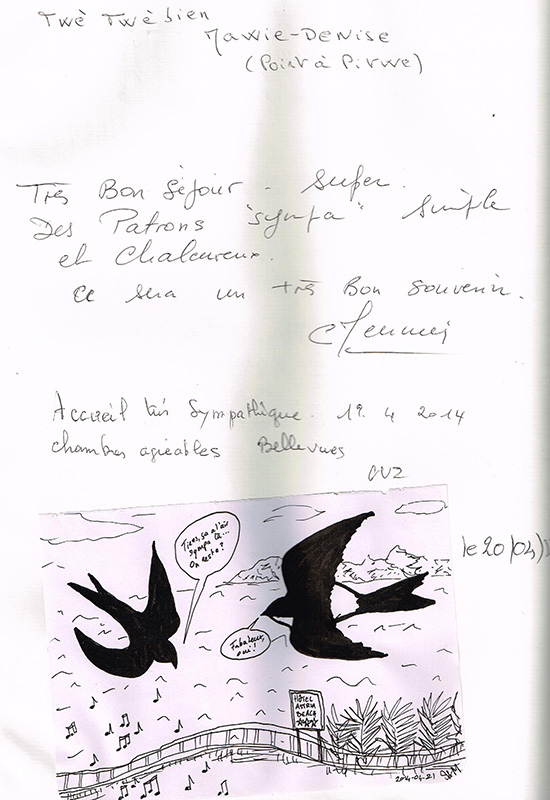 Twè Twè bien
Mawie-Denise
(Point à Pitwe)
Très Bon Séjour. Super.
Des Patrons "sympa" simple
et Chaleureux.
ce sera un très Bon souvenir.
Accueil très Sympathique. 19. 4 2014
chambres agréables Belles vues
le 20/04/
Tiens, ça a l'air
sympa là...
On reste?
Fabuleux,
oui!
HÔTEL
BEACH
2014-04-21